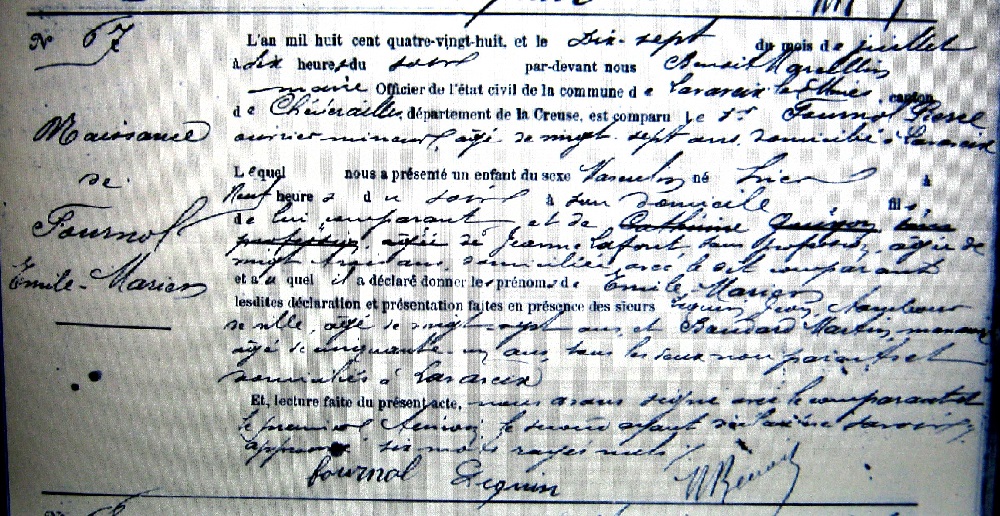 N° 67
Naissance
de
Fournol
Emile-Marien
L'an mil huit cent quatre-vingt-huit, et le Dix-sept du mois de juillet
à dix heures du soir par-devant nous Benoit Marcellin
maire Officier de l'état civil de la commune de Lavaveix les Mines, canton
de Chénérailles, département de la Creuse, est comparu le Sr Fournol Pierre
ouvrier mineur, agé de vingt sept ans, domicilié à Lavaveix
Lequel nous a présenté un enfant du sexe Masculin né hier à
Neuf heures du soir à son domicile fils
de lui comparant et de Catherine
agée de Jeanne Lafont, sans profession, agée de
vingt trois ans, domiciliée avec le dit comparant
et auquel il a déclaré donner les prénoms de Emile-Marien
lesdites déclaration et présentation faites en présence des sieurs Jean
de ville, agé de vingt-sept ans, et Martin, manœuvre
agé de cinquante-un ans, tous les deux non parents et
domiciliés à Lavaveix
Et, lecture faite du présent acte, nous avons signé avec le comparant et
le premier témoin, le second ayant déclaré ne savoir,
approuvé six mots rayés nuls
fournol Dequin MBenoit